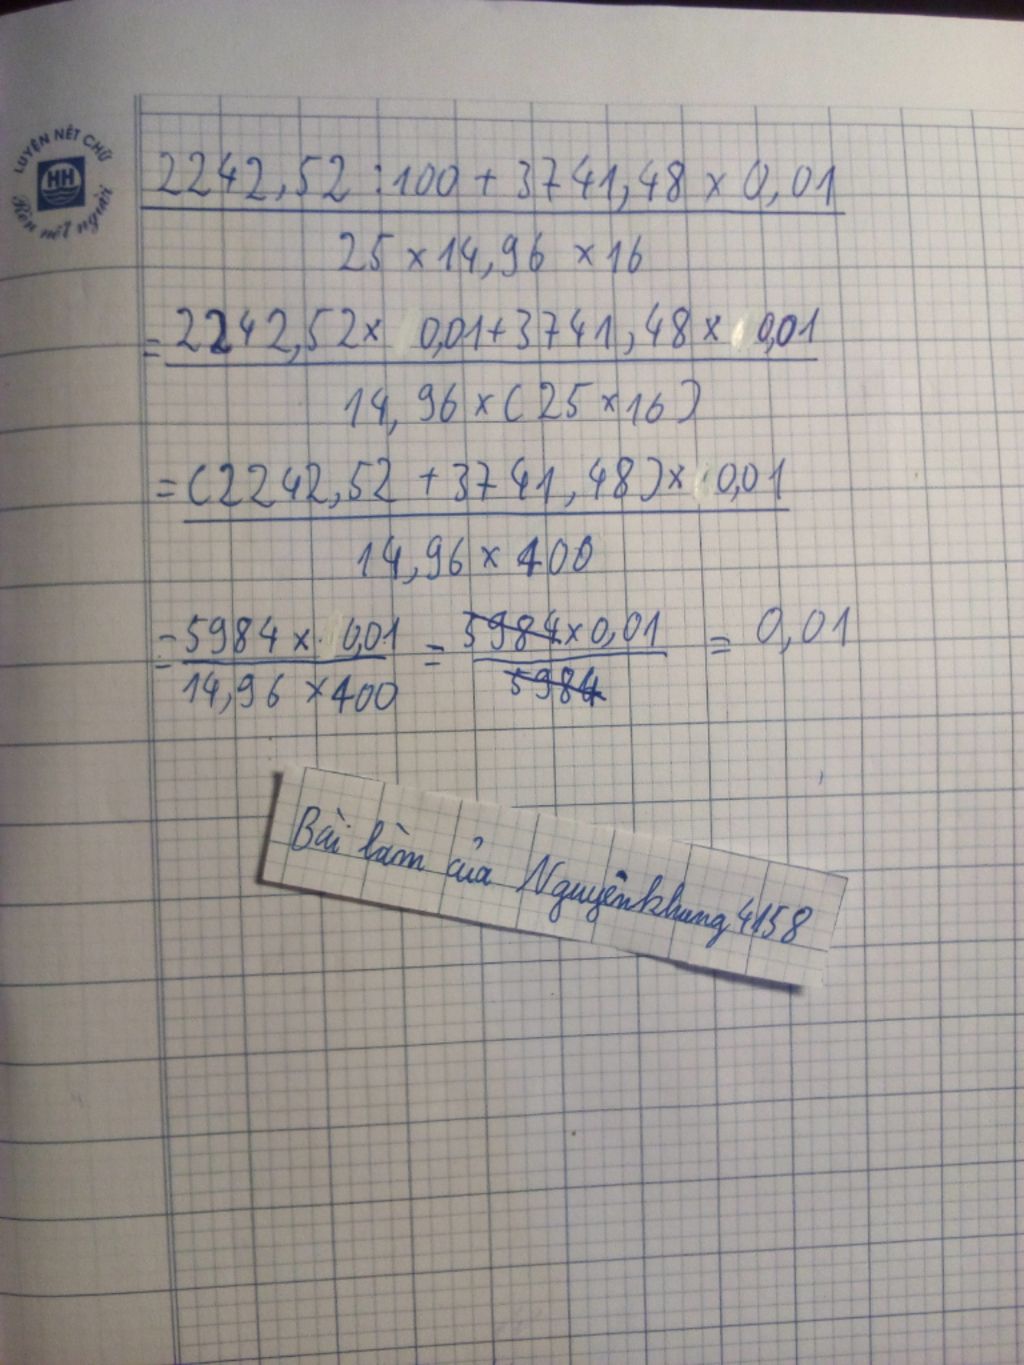 LUYỆN NÉT CHỮ
HH
Rèn nết người
2242,52 : 100 + 3741,48 × 0,01
25 × 14,96 × 16
= 2242,52 × 0,01 + 3741,48 × 0,01
14,96 × (25 × 16)
= (2242,52 + 3741,48) × 0,01
14,96 × 400
= 5984 × 0,01 = 5984 × 0,01 = 0,01
14,96 × 400 5984
Bài làm của Nguyênkhung4158